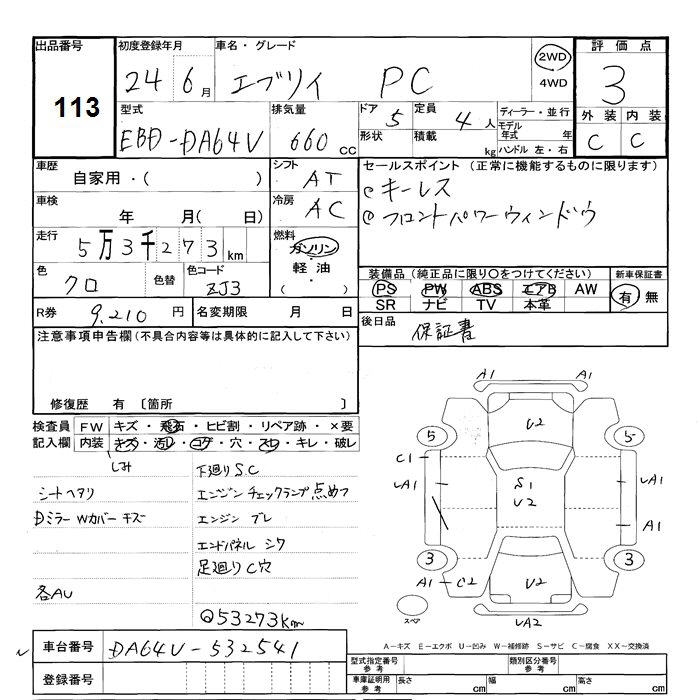 出品番号 初度登録年月 車名・グレード 評価点
113 24 6月 エブリイ PC 2WD 4WD 3
型式 排気量 ドア 5 定員 4人 ディーラー・並行 外装 内装
EBD-DA64V 660cc 形状 積載 kg モデル年式 年 ハンドル 左・右 C C
車歴 自家用・( ) シフト AT セールスポイント (正常に機能するものに限ります)
車検 年 月( 日) 冷房 AC ◎キーレス
走行 5万3千273km 燃料 ガソリン・軽油 ◎フロントパワーウィンドウ
色 クロ 色替 色コード ZJ3 装備品(純正品に限り○をつけてください) 新車保証書
PS PW ABS エアB AW 有 無
SR ナビ TV 本革
R券 9,210円 名変期限 月 日 後日品 保証書
注意事項申告欄(不具合内容等は具体的に記入して下さい)
修復歴 有 〔箇所 〕
検査員 FW キズ・飛石・ヒビ割・リペア跡・×要
記入欄 内装 キズ・汚レ・コゲ・穴・スレ・キレ・破レ
しみ 下廻りS.C
シートヘタリ エンジンチェックランプ点めつ
Dミラー Wカバー キズ エンジン ブレ
エンドパネル シワ
足廻りC穴
各AU
◎53273km
A1 A1
U2
5 5
C1 UA1 S1 U2 UA1
A1
3 3
A1-C2 U2
スペア UA2
車台番号 DA64V-532541
登録番号
A-キズ E-エクボ U-凹み W-補修跡 S-サビ C-腐食 XX-交換済
型式指定番号 参考 類別区分番号 参考
車庫証明用 参考 長さ cm 幅 cm 高さ cm